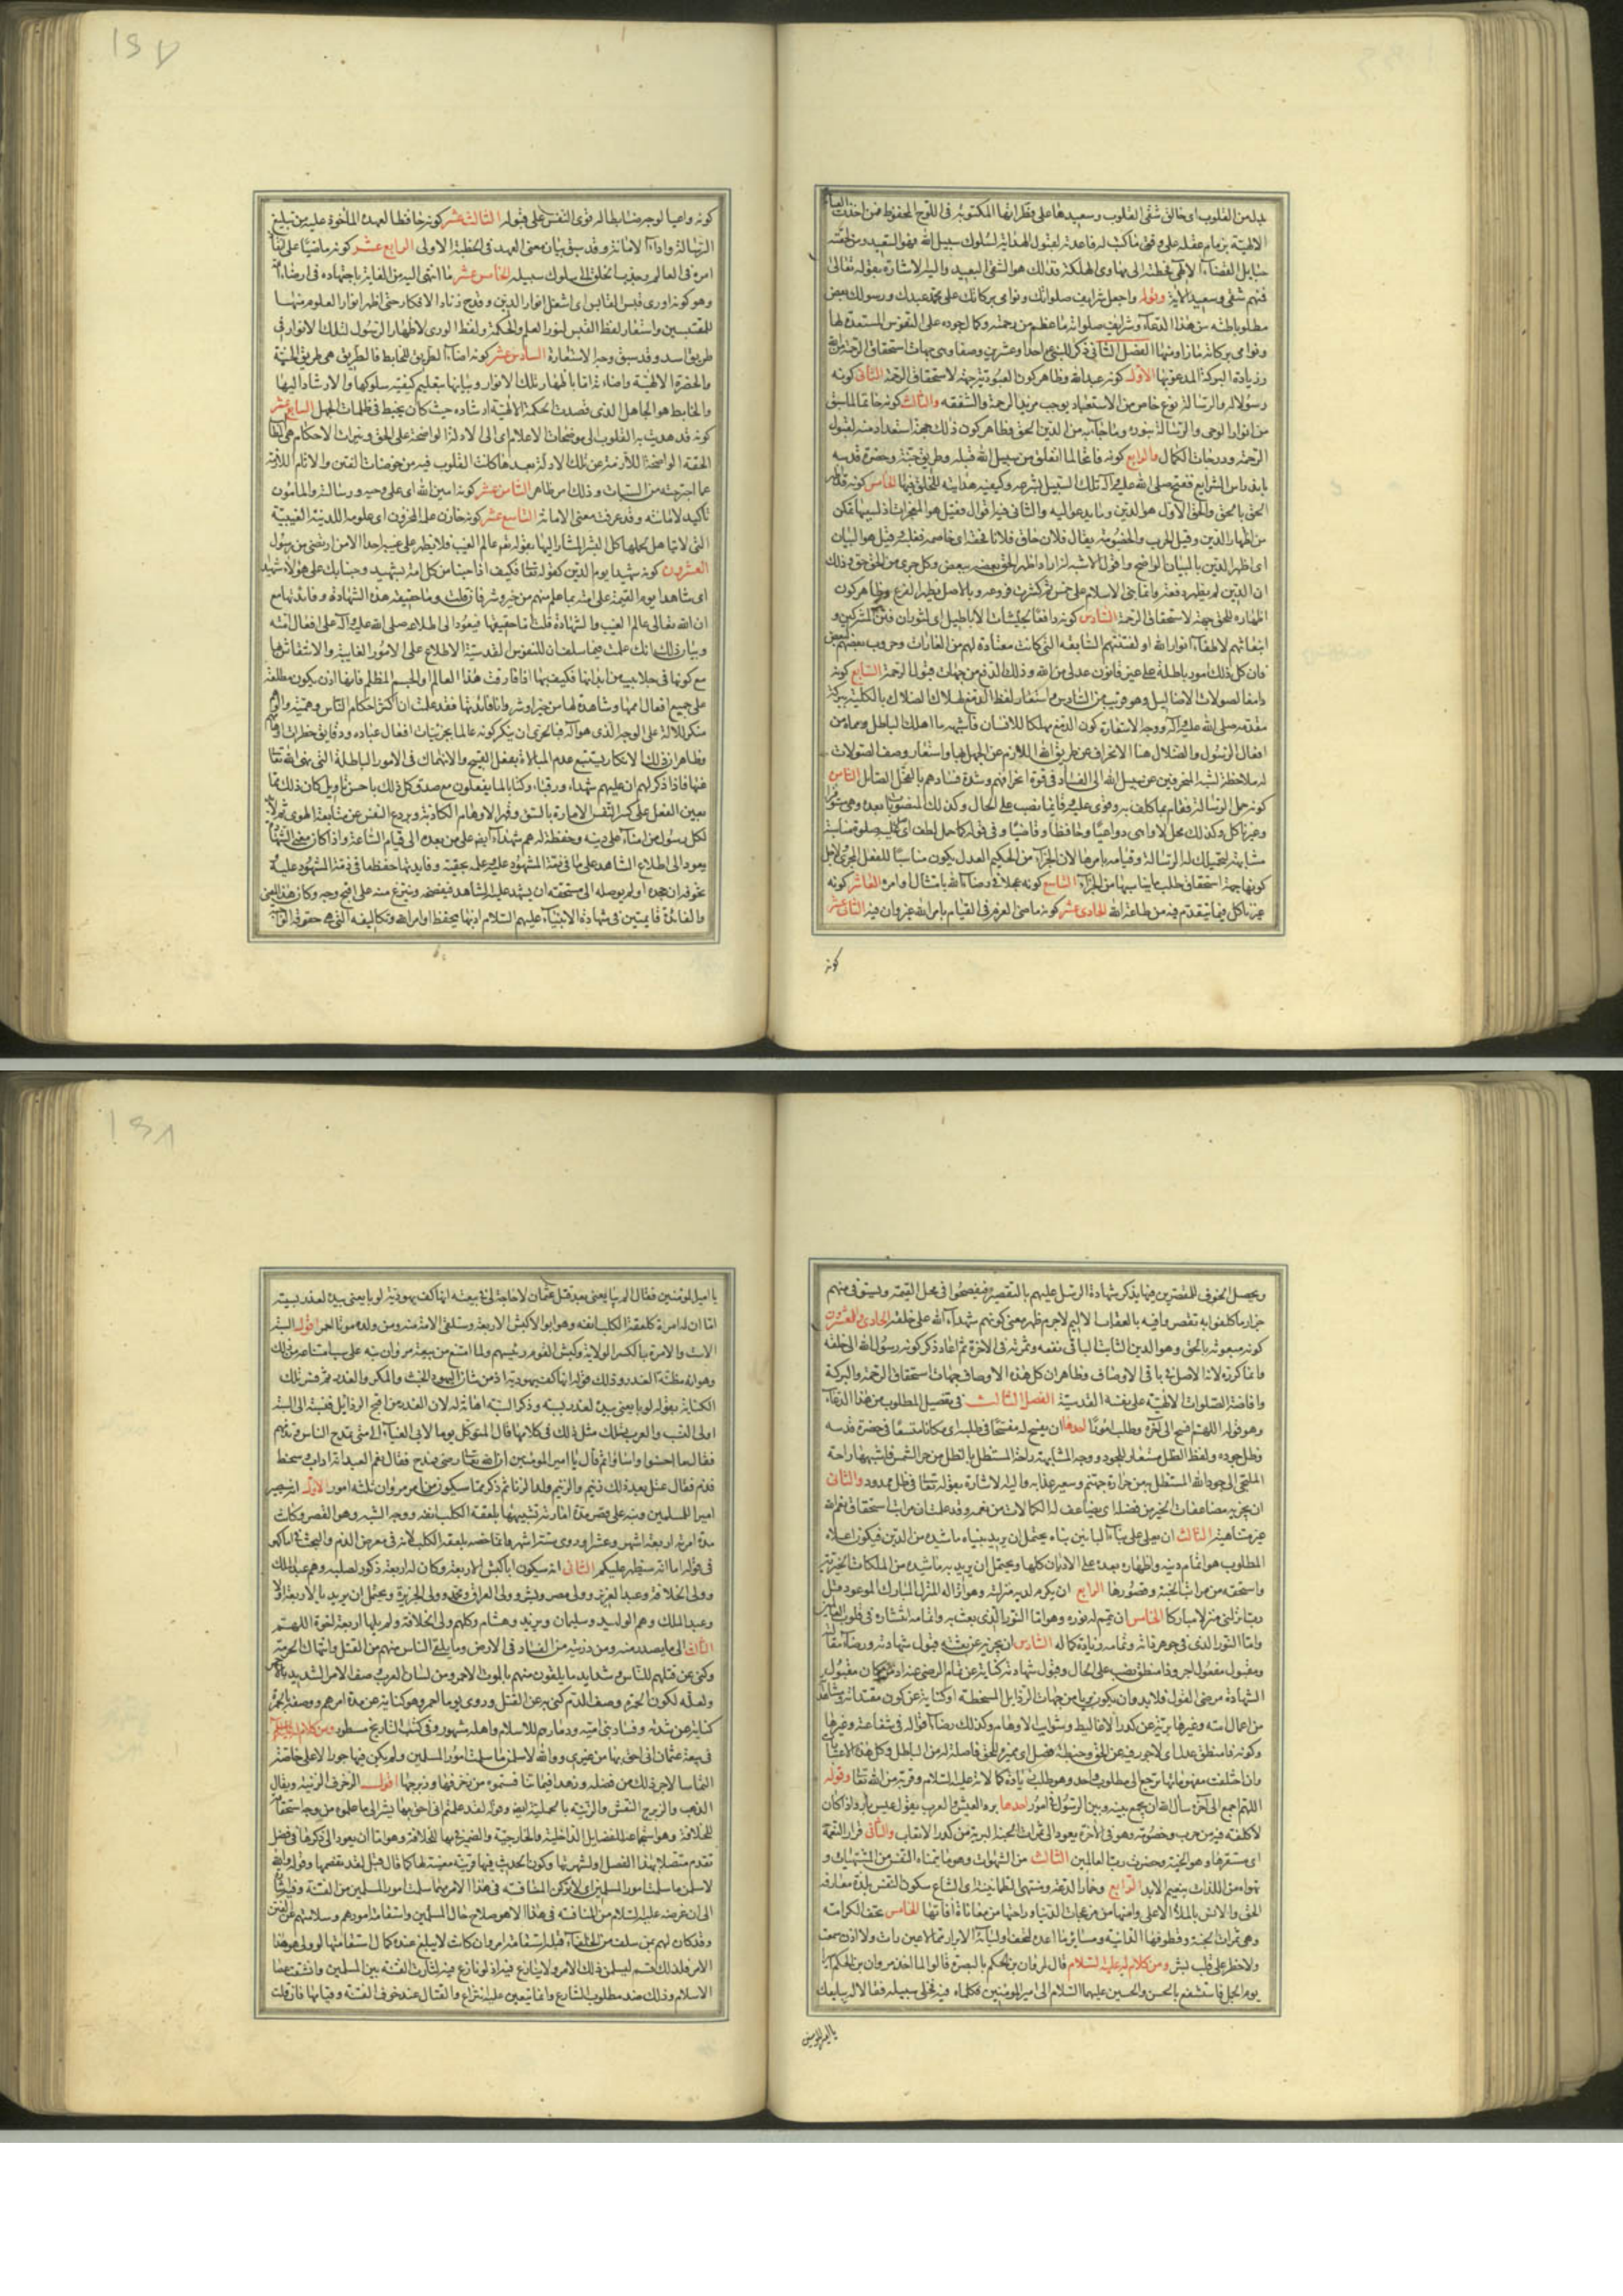 ١٥٧
جبله من القلوب اى خالق شقى القلوب وسعيدها على فطراتها المكتوبة فى اللوح المحفوظ فمن اخذت العناية
الالهية بزمام عقله على وفق ما كتب له فاعدته لقبول الهداية لسلوك سبيل الله فهو السعيد ومن لحقته
حبايل القضاء الالهى فحطته الى مهاوى الهلكة فذلك هو الشقى البعيد واليه الاشارة بقوله تعالى
فمنهم شقى وسعيد الاية وقوله واجعل شرايف صلواتك ونوامى بركاتك على محمد عبدك ورسولك بعض
مطلوباته من هذا الدعاء وشرايف صلواته ما عظم من رحمته وكمال جوده على النفوس المستعدة لها
ونوامى بركاته ما زاد منها الفصل الثانى ذكر للنبى احدا وعشرين وصفا وهى جهات استحقاق الرحمة من الله
وزيادة البركة المدعو بها الاول كونه عبد الله وظاهر كون العبودية جهة لاستحقاق الرحمة الثانى كونه
رسولا له والرسالة نوع خاص من الاستعباد يوجب مزيد الرحمة والشفقة والثالث كونه خاتما لما سبق
من انوار الوحى والرسالة بنوره وما جاء به من الدين الحق فظاهر كون ذلك جهة استعداد منه لقبول
الرحمة ودرجات الكمال والرابع كونه فاتحا لما انغلق من سبيل الله قبله وطريق جنته وحضرة قدسه
باندراس الشرايع ففتح صلى الله عليه وآله تلك السبيل بشرعه وكيفية هدايته للخلق فيها الخامس كونه قد اظهر
الحق بالحق والحق الاول هو الدين وما يدعو اليه والثانى فيه اقوال فقيل هو المعجزات اذ بسببها تمكن
من اظهار الدين وقيل الحرب والخصومة يقال فلان حاق فلانا فحقه اى خاصمه فغلبه وقيل هو البيان
اى اظهر الدين بالبيان الواضح واقول الاشبه انه اراد اظهر الحق بعضه ببعض وكل جزئى من الحق حق وذلك
ان الدين لم يظهره دفعة وانما بنى الاسلام على خمس ثم كثرت فروعه وبالاصل يظهر الفرع وظاهر كون
اظهاره للحق جهة لاستحقاق الرحمة السادس كونه دافعا لجيشات الاباطيل اى لثوران فتن المشركين و
انبعاثهم لاطفاء انوار الله او لفتنتهم السابقة التى كانت معتادة لهم من الغارات وحروب بعضهم لبعض
فان كل ذلك امور باطلة على غير قانون عدلى من الله وذلك الدفع من جهات قبول الرحمة السابع كونه
دامغا لصولات الاضاليل وهو قريب من السادس واستعار لفظ الدمغ لهلاك الضلال بالكلية ببركة
مقدمه صلى الله عليه وآله ووجه الاستعارة كون الدمغ مهلكا للانسان فاشبهه ما اهلك الباطل ومحاه من
افعال الرسول والضلال هنا الانحراف عن طريق الله اللازم عن الجهل بها واستعار وصف الصولات
له ملاحظة لشبه المنحرفين عن سبيل الله الى الفساد فى قوة انحرافهم وشدة فسادهم بالفحل الصائل الثامن
كونه حمل الرسالة فقام بما كلف به وقوى عليه وقائما نصب على الحال وكذلك المنصوبات بعده وهى مستوفزا
وغير ناكل وكذلك محل لا واهى وواعيا وحافظا وماضيا وفى قوله كما حمل لطف اى صلوة مناسبة
مشابهة لتحميلك له الرسالة وقيامه بامرها لان الجزاء من الحكيم العدل يكون مناسبا للفعل المجزى لاجل
كونها جهة استحقاق طلب ما يناسبها من الجزاء التاسع كونه عجلا فى رضاء الله بامتثال اوامره العاشر كونه
غير ناكل فيما يتقدم فيه من طاعة الله الحادى عشر كونه ماضى العزم فى القيام بامر الله غير وان فيه الثانى عشر
كونه
كونه واعيا لوحيه ضابطا له قوى النفس على قبوله الثالث عشر كونه حافظا لعهده المأخوذ عليه من تبليغ
الرسالة واداء الامانة وقد سبق بيان معنى العهد فى الخطبة الاولى الرابع عشر كونه ماضيا على نفاذ
امره فى العالم وجذب الخلق الى سلوك سبيله الخامس عشر ما انتهى اليه من الغاية باجتهاده فى ارضاء الله
وهو كونه اورى قبس القابس اى اشعل انوار الدين وقدح زناد الافكار حتى اظهر انوار العلوم منها
للمقتبسين واستعار لفظ القبس لنور العلم والحكمة ولفظ الورى لاظهار الرسول لتلك الانوار فى
طريق الله وقد سبق وجه الاستعارة السادس عشر كونه اضاء الطريق للخابط فالطريق هى طريق الجنة
والحضرة الالهية واضاءتها باظهار تلك الانوار وبيانها بتعليم كيفية سلوكها والارشاد اليها
والخابط هو الجاهل الذى قصدت الحكمة الالهية ارشاده حيث كان يخبط فى ظلمات الجهل السابع عشر
كونه قد هديت به القلوب الى موضحات الاعلام اى الى الادلة الواضحة على الحق ونيرات الاحكام هى المطالب
الحقة الواضحة اللازمة عن تلك الادلة بعد ما كانت القلوب فيه من خوضات الفتن والاثام اللازمة
عما اجترحته من السيئات وذلك امر ظاهر الثامن عشر كونه امين الله اى على وحيه ورسالته والمأمون
تأكيد لامانته وقد عرفت معنى الامانة التاسع عشر كونه خازن علمه المخزون اى علومه اللدنية الغيبية
التى لا يتاهل لحملها كل البشر المشار اليها بقوله تعالى عالم الغيب فلا يظهر على غيبه احدا الا من ارتضى من رسول
العشرون كونه شهيدا يوم الدين كقوله تعالى فكيف اذا جئنا من كل امة بشهيد وجئنا بك على هؤلاء شهيدا
اى شاهدا يوم القيمة على امته بما علم منهم من خير وشر فان قلت وما حقيقة هذه الشهادة وفائدتها مع
ان الله تعالى عالم الغيب والشهادة قلت اما حقيقتها فيعود الى اطلاعه صلى الله عليه وآله على افعال امته
وبيان ذلك انك علمت فيما سلف ان للنفوس القدسية الاطلاع على الامور الغايبة والانتقاش بها
مع كونها فى جلابيب من ابدانها فكيف بها اذا فارقت هذا العالم والجسم المظلم فانها اذن يكون مطلعة
على جميع افعال اممها ومشاهدة لها من خير او شر واما فائدتها فقد علمت ان اكثر احكام الناس وهمية والوهم
منكر للاله على الوجه الذى هو اله فبالحرى ان ينكر كونه عالما بجزئيات افعال عباده ودقايق خطرات اوهامهم
وظاهر ان ذلك الانكار يستتبع عدم المبالاة بفعل القبيح والانهماك فى الامور الباطلة التى نهى الله تعالى
عنها فاذا ذكر لهم ان عليهم شهداء ورقباء وكتابا لما يفعلون مع صدق كل ذلك باحسن تاويل كان ذلك مما
يعين العقل على كسر النفس الامارة بالسوء وقهر الاوهام الكاذبة ويردع النفس عن متابعة الهوى ثم لا بد
لكل رسول من امناء على دينه وحفظة له هم شهداء ايضا على من بعده الى قيام الساعة واذا كان معنى الشهادة
يعود الى اطلاع الشاهد على ما فى ذمة المشهود عليه وعلمه بحقيته وفايدتها حفظ ما فى ذمة المشهود عليه
تخوفه ان جحده او لم يوصله الى مستحقه ان يشهد عليه الشاهد فيفضحه وينتزع منه على اقبح وجه وكان هذا المعنى
والفائدة قايمين فى شهادة الانبياء عليهم السلام اذ بها يحفظ اوامر الله وتكاليفه التى هى حقوقه الواجبة
١٥٨
ويحصل الخوف للمقصرين فيها بذكر شهادة الرسل عليهم بالتقصير فيفضحوا فى محفل القيمة ويستوفى منهم
جزاء ما كلفوا به تقصروا فيه بالعقاب الاليم لا جرم ظهر معنى كونهم شهداء الله على خلقه الحادى والعشرون
كونه مبعوثه بالحق وهو الدين الثابت الباقى نفعه وثمرته فى الاخرة ثم اعاد ذكر كونه رسول الله الى خلقه
وانما كرره لانه الاصل فى باقى الاوصاف وظاهر ان كل هذه الاوصاف جهات استحقاق الرحمة والبركة
وافاضة الصلوات الالهية على نفسه القدسية الفصل الثالث فى تفصيل المطلوب من هذا الدعاء
وهو قوله اللهم افسح الى آخره وطلب امورا احدها ان يفسح له مفسحا فى ظله اى مكانا متسعا فى حضرة قدسه
وظل جوده ولفظ الظل مستعار للجود ووجه المشابهة راحة المستظل بالظل من حر الشمس فاشبهها راحة
الملتجى الى جود الله المستظل به من حرارة جهنم وسعير عذابه واليه الاشارة بقوله تعالى فى ظل ممدود والثانى
ان يجزيه مضاعفات الخير من فضله اى يضاعف له الكمالات من نعمه وقد علمت ان مراتب استحقاق نعم الله
غير متناهية الثالث ان يعلى على بناء البانين بناءه يحتمل ان يريد ببنائه ما شيده من الدين فيكون اعلاءه
المطلوب هو اتمام دينه واظهاره بعده على الاديان كلها ويحتمل ان يريد به ما شيده من الملكات الخيرية
واستحقه من مراتب الجنة وقصورها الرابع ان يكرم لديه منزلته وهو انزاله المنزل المبارك الموعود مثل
رب انزلنى منزلا مباركا الخامس ان يتم له نوره وهو اما النور الذى بعث به واتمامه انتشاره فى قلوب العالمين
واما النور الذى فى جوهر ذاته وتمامه زيادة كماله السادس ان يجزيه من بعثه قبول شهادته ورضاء مقالته
ومقبول مفعول اجزه وذا منطق نصب على الحال وقبول شهادته كناية عن تمام الرضى عنه اذ من كان مقبول
الشهادة مرضى القول فلا بد وان يكون بريا من جهات الرذايل المسخطة او كناية عن كون معتقداته وما شاهده
من اعمال امته وغيرها بريئة عن كدر الاغاليط وشوايب الاوهام وكذلك رضاء اقواله فى شفاعته وغيرها
وكونه ذا منطق عدل اى لا جور فيه عن الحق وخطبة فصل اى مميز للحق فاصلة له من الباطل وكل هذه الاعتبارات
وان اختلفت مفهوماتها ترجع الى مطلوب واحد وهو طلب زيادة كماله عليه السلام وقربه من الله تعالى وقوله
اللهم اجمع الى آخره سأل الله ان يجمع بينه وبين الرسول فى امور احدها برد العيش والعرب يقول عيش بارد اذا كان
لا كلفة فيه من حرب وخصومة وهو فى الاخرة يعود الى ثمرات الجنة البرية من كدر الاتعاب والثانى قرار النعمة
اى مستقرها وهو الجنة وحضرت رب العالمين الثالث منى الشهوات وهو ما تتمناه النفس من المشتهيات و
تهواه من اللذات بنعيم الابد الرابع رخاء الدعة ومنتهى الطمانينة اى اتساع سكون النفس بلذة معارفة
الحق والانس بالملأ الاعلى وامنها من مزعجات الدنيا وراحتها من معاناة افاتها الخامس تحف الكرامة
وهى ثمرات الجنة وقطوفها الدانية وساير ما اعده لتحف اوليائه الابرار مما لا عين رات ولا اذن سمعت
ولا خطر على قلب بشر ومن كلام له عليه السلام قاله لمروان بن الحكم بالبصرة قالوا لما اخذ مروان بن الحكم اسيرا
يوم الجمل فاستشفع بالحسن والحسين عليهما السلام الى امير المؤمنين فكلماه فيه فخلى سبيله فقالا له يبايعك
يا امير المؤمنين
يا امير المؤمنين فقال الم يبايعنى بعد قتل عثمان لا حاجة لى فى بيعته انها كف يهودية لو بايعنى بيده لغدر بسبته
اما ان له امرة كلعقة الكلب انفه وهو ابو الاكبش الاربعة وستلقى الامة منه ومن ولده موتا احمر اقول السبة
الاست والامرة بالكسر الولاية وكبش القوم رئيسهم ولما امتنع من بيعة مروان نبه على سبب امتناعه من ذلك
وهو انه مظنة الغدر وذلك قوله انها كف يهودية اذ من شأن اليهود الخبث والمكر والغدر ثم فسر تلك
الكناية بقوله لو بايعنى بيده لغدر بسبته وذكر السبة اهانة له لان الغدر من اقبح الرذايل فنسبته الى السبة
اولى النسب والعرب تسلك مثل ذلك فى كلامها قال المتوكل يوما لابى العيناء الى متى تمدح الناس وتذمهم
فقال ما احسنوا واساؤا ثم قال يا امير المؤمنين ان الله تعالى رضى فمدح فقال نعم العبد انه اواب وسخط
فذم فقال عتل بعد ذلك زنيم والزنيم ولد الزنا ثم ذكر مما سيكون من امر مروان ثلثة امور الاول انه سيصير
اميرا للمسلمين ونبه على قصر مدة امارته بتشبيهها بلعقة الكلب انفه ووجه الشبه هو القصر وكانت
مدة امرته اربعة اشهر وعشرا وروى ستة اشهر وانما خصه بلعقة الكلب لانه فى معرض الذم
الثانى انه سيكون ابا لاكبش اربعة وكان له اربعة ذكور لصلبه وهم عبد الملك
وولى الخلافة وعبد العزيز وولى مصر وبشر وولى العراق ومحمد وولى الجزيرة ويحتمل ان يريد بالاربعة اولاد
عبد الملك وهم الوليد وسليمان ويزيد وهشام وكلهم ولى الخلافة ولم يلها اربعة اخوة الا هم
الثالث الى ما يصدر منه ومن ذريته من الفساد فى الارض وما يلقى الناس منهم من القتل وانتهاك الحرمة
وكنى عن قتلهم للناس وشدايد ما يلقون منهم بالموت الاحمر ومن لسان العرب وصف الامر الشديد بالاحمر
ولعله لكون الحمرة وصف الدم كنى به عن القتل وروى يوما احمر وهو كناية عن مدة امرهم ووصفه بالحمرة
كناية عن شدته وفساد بنى امية ودمارهم للاسلام واهله مشهور وفى كتب التاريخ مسطور ومن كلام له عليه السلام
فى بيعة عثمان انى احق بها من غيرى ووالله لاسلمن ما سلمت امور المسلمين ولم يكن فيها جور الا على خاصة
التماسا لاجر ذلك من فضله وزهدا فيما تنافستموه من زخرفه وزبرجه اقول الزخرف الزينة ويقال
الذهب والزبرج النقش والزينة بالحلية ايضا وقوله لقد علمتم انى احق بها يشير الى ما علموه من وجه استحقاقه
للخلافة وهو استجماعه للفضايل الداخلية والخارجية والضمير فى بها للخلافة وهو اما ان يعود الى ذكرها فى فصل
تقدم متصلا بهذا الفصل او لشهرتها وكون الحديث فيها قرينة معينة لها كما قال قبل لقد تقمصها وقوله والله
لاسلمن ما سلمت امور المسلمين اى لاتركن المنافسة فى هذا الامر مهما سلمت امور المسلمين من الفتنة وفيه اشارة
الى ان غرضه عليه السلام من المنافسة فى هذا الامر هو صلاح حال المسلمين واستقامة امورهم وسلامتهم عن الفتن
وقد كان لهم بمن سلف من الخلفاء قبله استقامة امر وان كانت لا يبلغ عنده كمال استقامتها لو ولى هو هذا
الامر فلذلك اقسم ليسلمن ذلك الامر ولا ينازع فيه اذ لو نازع فيه لثارت الفتنة بين المسلمين وانشقت عصا
الاسلام وذلك ضد مطلوب الشارع وانما يتعين عليه النزاع والقتال عند خوف الفتنة وقيامها فان قلت